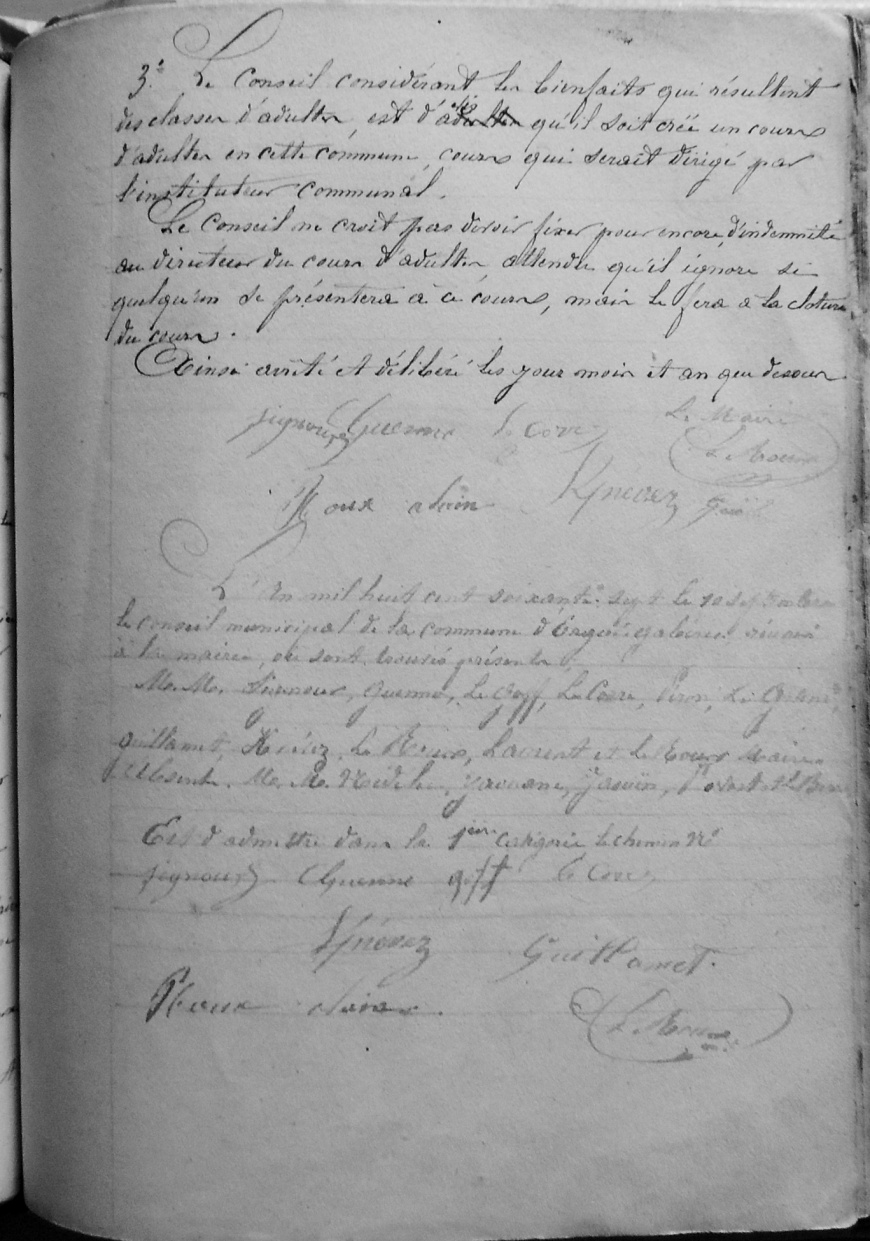 3° Le Conseil considérant les bienfaits qui résultent
des classes d'adultes, est d'avis qu'il soit créé un cours
d'adultes en cette commune, cours qui serait dirigé par
l'instituteur communal.
Le Conseil ne croit pas devoir fixer pour encore d'indemnité
au directeur du cours d'adultes, attendu qu'il ignore si
quelqu'un se présentera à ce cours, mais le fera à la cloture
du cours.
Ainsi arrêté et délibéré les jour mois et an que dessus
Signour Guenno Le Corre Le Maire
Le Roux
Roux alain
L'An mil huit cent soixante-sept le 10 septembre
le conseil municipal de la commune d'Ergué-gabéric réuni
à la mairie, où sont trouvés présents
M.M. Guenno, Le Goff, Le Corre,
Guillamet, Laurent et Le Roux Maire
Absents. M.M. Nédélec,
Est d'admettre dans la 1ère catégorie le chemin N°
Signour Guenno goff Le Corre
Guillamet.
Roux alain
Le Roux